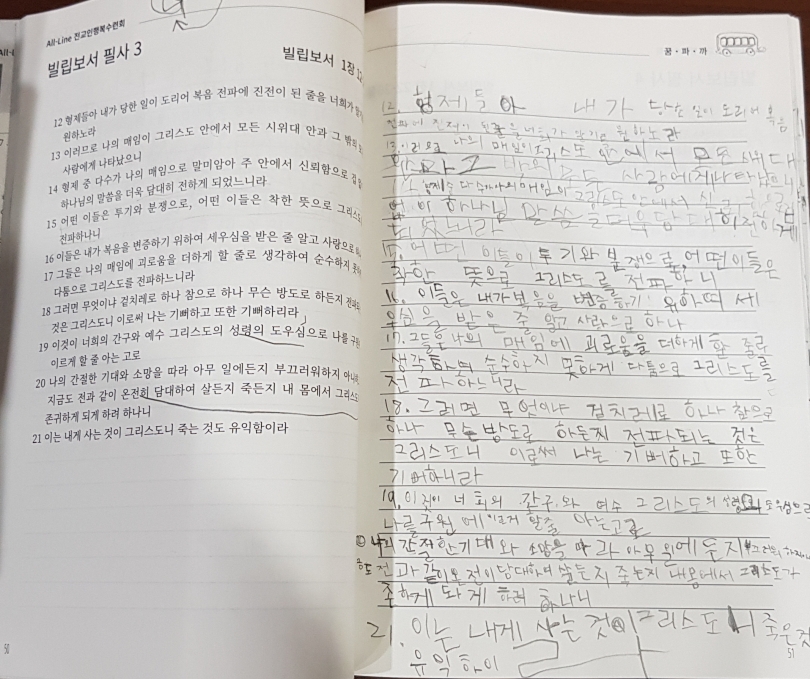 All-Line 전교인행복수련회
빌립보서 필사 3
빌립보서 1장 12
12 형제들아 내가 당한 일이 도리어 복음 전파에 진전이 된 줄을 너희가
원하노라
13 이러므로 나의 매임이 그리스도 안에서 모든 시위대 안과 그 밖의
사람에게 나타났으니
14 형제 중 다수가 나의 매임으로 말미암아 주 안에서 신뢰함으로
하나님의 말씀을 더욱 담대히 전하게 되었느니라
15 어떤 이들은 투기와 분쟁으로, 어떤 이들은 착한 뜻으로
전파하나니
16 이들은 내가 복음을 변증하기 위하여 세우심을 받은 줄 알고 사랑으로
17 그들은 나의 매임에 괴로움을 더하게 할 줄로 생각하여 순수하지
다툼으로 그리스도를 전파하느니라
18 그러면 무엇이냐 겉치레로 하나 참으로 하나 무슨 방도로 하든지
것은 그리스도니 이로써 나는 기뻐하고 또한 기뻐하리라
19 이것이 너희의 간구와 예수 그리스도의 성령의 도우심으로 나를
이르게 할 줄 아는 고로
20 나의 간절한 기대와 소망을 따라 아무 일에든지 부끄러워하지
지금도 전과 같이 온전히 담대하여 살든지 죽든지 내 몸에서
존귀하게 되게 하려 하나니
21 이는 내게 사는 것이 그리스도니 죽는 것도 유익함이라
50
꿈·파·까
12. 형제들아 내가 당한 일이 도리어 복음
나의 매임이 그리스도 안에서 모든 시위대
밖의 모든 사람에게 나타났으니
하나님 말씀 더욱 담대히 전하게
되었느니라
15. 어떤 이들이 투기와 분쟁으로, 어떤이들은
착한 뜻으로 그리스도를 전파하니
16. 이들은 내가 복음을 변증하기 위하여 세
우심을 받은 줄 알고 사랑으로 하나
17. 그들은 나의 매임에 괴로움을 더하게 할 줄로
생각하여 순수하지 못하게 다툼으로 그리스도를
전파하느니라
18. 그러면 무엇이냐 겉치레로 하나 참으로
하나 무슨 방도로 하든지 전파되는 것은
그리스도니 이로써 나는 기뻐하고 또한
기뻐하니라
19. 이것이 너희의 간구와 예수 그리스도의 성령의 도우심으로
나를 구원에 이르게 할줄 아는고로
나의 간절한 기대와 소망을 따라 아무 일에든지
전과 같이 온전이 담대하여 살든지 죽든지 내몸에서 그리스도가
존하게 되게 하려 하나니
21. 이는 내게 사는 것이 그리스도니 죽은것
유익하이
51